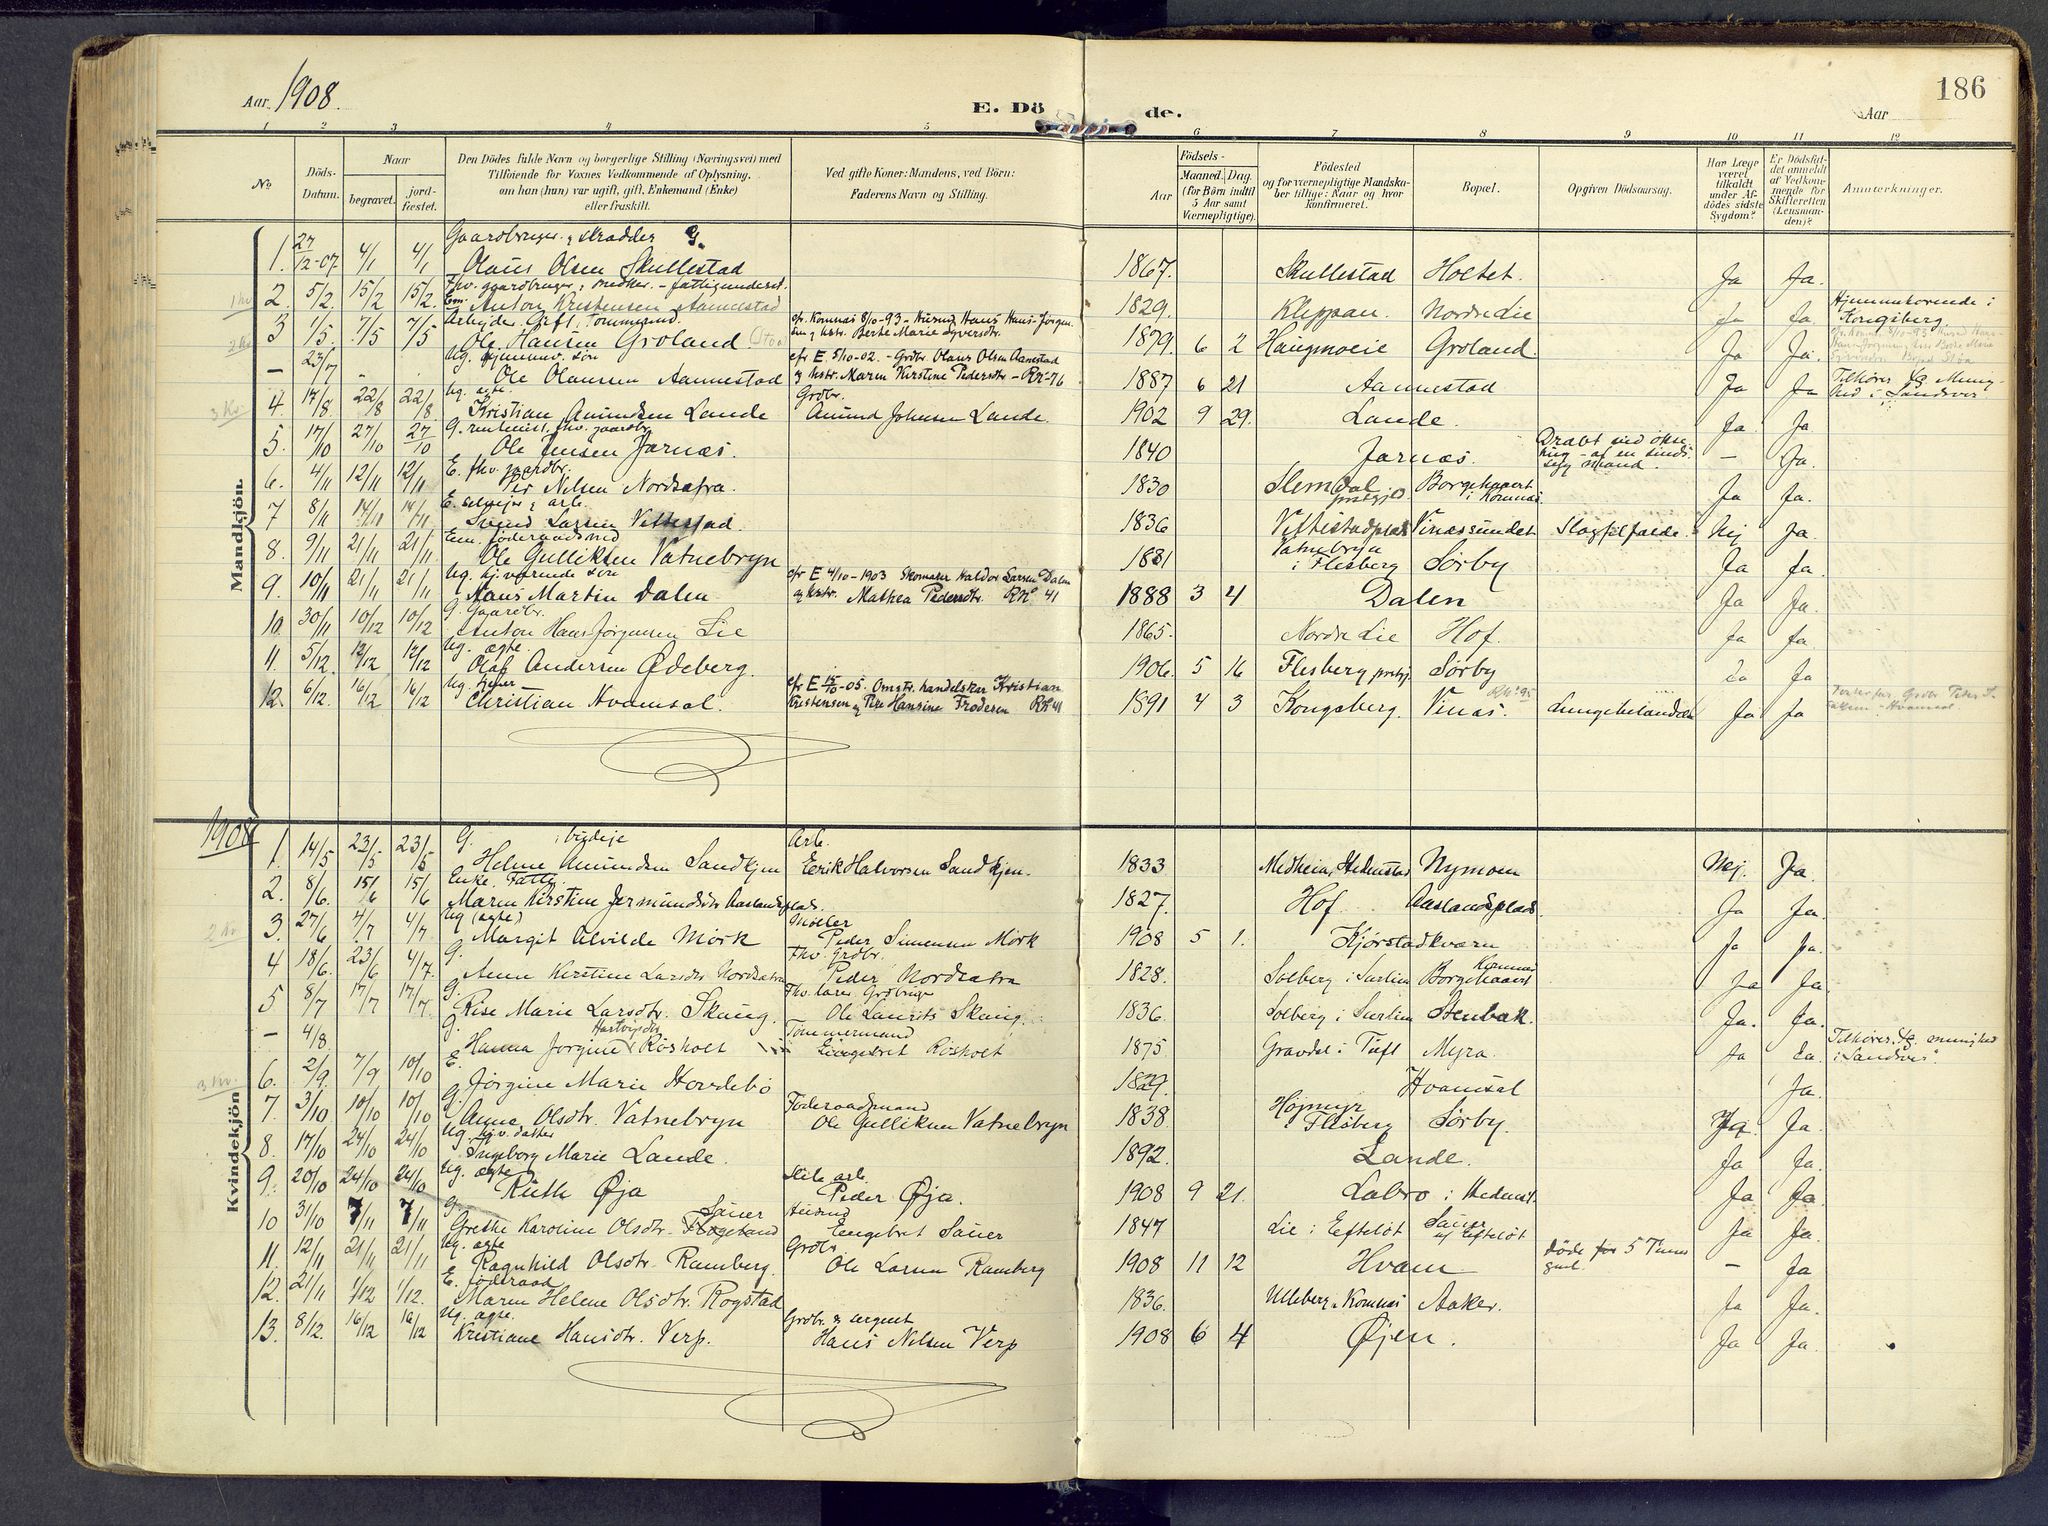 186
Aar. 1908.
E. Dö de.
Aar
1 2 3 4 5 6 7 8 9 10 11 12
No.
Döds-Datum.
Naar
begravet.
jord-fæstet.
Den Dödes fulde Navn og borgerlige Stilling (Næringsvei) med
Tilföiende for Voxnes Vedkommende af Oplysning,
om han (hun) var ugift, gift, Enkemand (Enke)
eller fraskilt.
Ved gifte Koner: Mandens, ved Börn:
Faderens Navn og Stilling.
Födsels-
Aar
Maaned. Dag.
(for Börn indtil
5 Aar samt
Værnepligtige).
Födested
og for værnepligtige Mandska-
ber tillige: Naar og hvor
konfirmeret.
Bopæl.
Opgiven Dödsaarsag.
Har Læge
været
tilkaldt
under Af-
dödes sidste
Sygdom?
Er Dödsfal-
det anmeldt
af Vedkom-
mende for
Skifteretten
(Lensman-
den)?
Anmærkninger.
Mandkjön.
Gaardbruger & skrædder G.
1. 27/12-07 4/1 4/1 Olaus Olsen Skullestad 1867. Skullestad Holtet. Ja Ja.
Fhv. gaardbruger, snedker. - fattigunderst.
2. 5/2. 15/2 15/2. Em. Anton Kristensen Aannestad 1829. Kleppan. Nordre Lie Ja Ja Hjemmehørende i Kongsberg.
Arbejder. Gift, Tømmermd.
3 1/5. 7/5 7/5 Ole Hansen Groland cfr. Komnæs 8/10-93 - Husmd. Hans Hans-Jørgen-
sen & hstr. Berthe Marie Syversdtr. 1879. 6 2 Haugmoeie Groland. Ja Ja.
Ug. hjemmev. søn
- 23/7 Ole Olaussen Aannestad cfr E. 5/10-02. - Grdbr. Olaus Olsen Aanestad
& hstr. Maren Kirstine Pedersdtr - RN-76 1887 6 21 Aannestad Ja Ja Tilhører fg. Menig-
hed i Sandsvær
Ug. ægte
4. 17/8 22/8 22/8 Kristian Amundsen Lande Grdbr.
Amund Johnsen Lande. 1902 9 29. Lande. Ja. Ja
5. 17/10 27/10 27/10 Ole Jensen Jarnæs. 1840 Jarnæs. Dræbt ved økse-
hug - af en sinds-
syg mand. - Ja.
E. fhv. gaardbr.
6. 4/11 12/11 12/11 Per Nilsen Nordsætra. 1830 Slemdal prstgj. Borgehaaet
i Komnæs. Ja Ja.
E. selvejer & arb.
7 8/11 14/11 14/11 Svend Larsen Vettestad. 1836 Vittestadplads Vinæssundet Slagtilfælde. Nej Ja.
Em. føderaadsmd
8. 9/11 21/11 21/11. Ole Gulliksen Vatnebryn 1831 Vatnebryn
i Flesberg Sørby Ja Ja.
Ug. hj.værende søn
9. 10/11 21/11 21/11 Hans Martin Dalen cfr E 4/10-1903 Skomaker Haldor Larsen Dalen
& hstr. Mathea Pedersdtr. RN 41 1888 3 4 Dalen Ja Ja.
G. Gaardbr.
10. 30/11 10/12 10/12 Anton Hans Jørgensen Lie 1865. Nordre Lie Hof. Ja Ja.
Ug. ægte.
11. 5/12. 12/12 12/12 Olaf Andersen Ødeberg. 1906. 5 16 Flesberg prstgj. Sørby Ja Ja
12. 6/12. 16/12 16/12 Christian Hvamsal. cfr E 15/10-05. Omstr. handelskar Kristian
Kristensen & Pige Hansine Frodesen RN 41 1891 4 3 Kongsberg. Vinæs. Lungebetændelse Ja Ja
1908
Kvindekjön
G. i bydeje
1. 14/5 23/5 23/5 Helene Amundsen Sandkjen Arb.
Erik Halvorsen Sandkjen. 1833 Medheia, Hedenstad Nymoen Nej. Ja.
Enke. Fattig
2. 8/6. 15/6 15/6 Maren Kirstine Jermundsdtr Aaslandsplads. 1827. Hof. Aaslandsplads. Ja Ja.
Ug (ægte)
3. 27/6 4/7 4/7 Margit Alvilde Mørk Møller
Peder Simensen Mørk 1908 5 1. Kjørstadkværn Ja Ja.
G.
4 18/6. 23/6 4/7. Anne Kirstine Larsdtr Nordsætra Fhv. Grdbr.
Peder Nordsætra 1828. Solberg i Surtlien Borgehaaet Komnæs Ja Ja.
G.
5 8/7 17/7 17/7. Lise Marie Larsdtr. Skaug. Ole Laurits Skaug. 1836. Solberg i Surtlien Stenbæk Ja. Ja.
G. Hartvigsdtr
- 4/8. Hanna Jørgine Røsholt Tømmermand
Engebret Røsholt 1875 Gravdal i Tuft Myra. Ja Ja. Tilhører fg. menighed
i Sandsvær.
E.
6. 2/9. 7/9 10/10 Jørgine Marie Storrdebö 1829. Hvamsal Ja.
G.
7. 3/10 10/10 10/10 Anne Olsdtr. Vatnebryn Føderaadsmand
Ole Gulliksen Vatnebryn 1838 Højmyr
i Flesberg Sørby. Ja. Ja.
Ug. hjv. datter
8. 17/10 24/10 24/10 Ingeborg Marie Lande. 1892. Lande. Ja Ja.
Ug. ægte
9. 20/10 24/10 24/10 Ruth Øja Peder Øja. 1908 9 21. Labro i Hedenst. Ja Ja.
G. Sauer
10 31/10 7/11 7/11 Grethe Karoline Olsdtr. Husmd
Engebret Sauer 1847 Lie i Efteløt Sauer
i Efteløt Ja Ja.
Ug. ægte
11. 12/11 21/11 21/11 Ragnhild Olsdtr. Ramberg. Grdbr
Ole Larsen Ramberg 1908 11 12 Hvam Døde for 5 Timer
gml. - Ja
E. føderaad
12. 21/11 1/12 1/12. Maren Helene Olsdtr. Rogstad 1836. Ulleberg i Komnæs Aaker. Ja Ja.
Ug. ægte.
13. 8/12. 16/12 16/12 Kristiane Hansdtr. Verp. Grdbr. & sergent
Hans Nilsen Verp 1908 6 4 Øjen. Ja Ja.